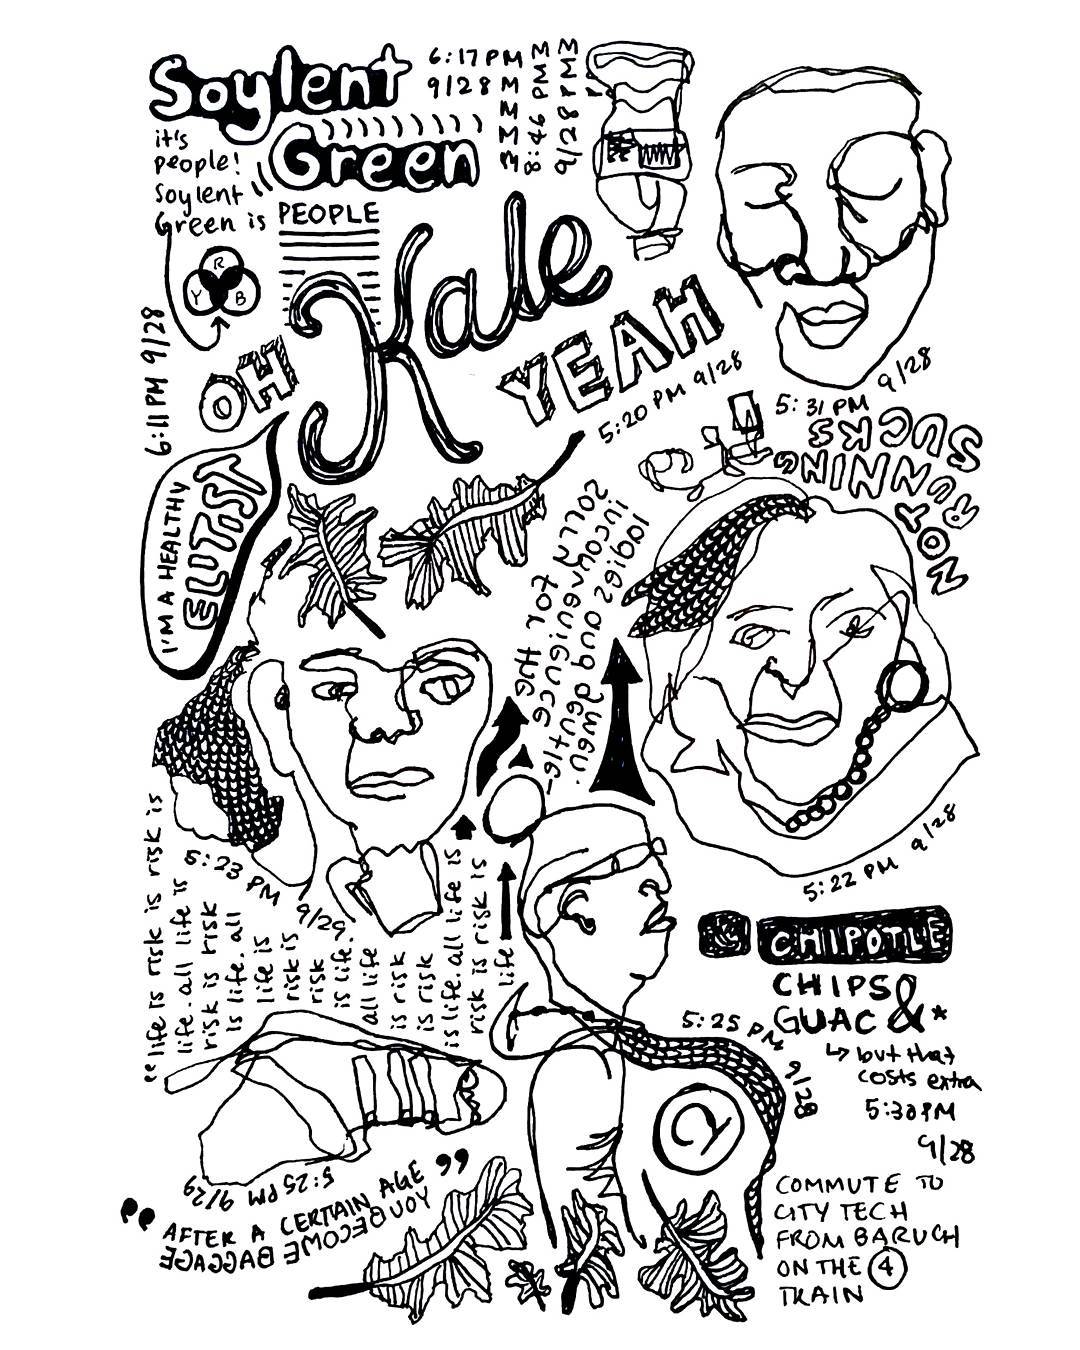 Soylent
Green
it's
people!
Soylent
Green is PEOPLE
6:17 PM
9/28
8:46 PM
9/28
R
Y B
6:11 PM 9/28
OH
Kale
YEAH
5:20 PM 9/28
9/28
5:31 PM
I'M A HEALTHY
ELITIST
NOT
RUNNING
SUCKS
sorry for the
inconvenience
ladies and gentle-
5:23 PM 9/29
5:22 PM 9/28
"life is risk is risk is
life. all life is
risk is risk
is life. all
life is
risk is
risk
is life.
all life
is risk
is risk
is life. all life is
risk is risk is
life
CHIPOTLE
CHIPS &
GUAC *
↳ but that
costs extra
5:30 PM
9/28
5:25 PM 9/28
5:25 PM 9/29
"AFTER A CERTAIN AGE
YOU BECOME BAGGAGE"
COMMUTE TO
CITY TECH
FROM BARUCH
ON THE 4
TRAIN